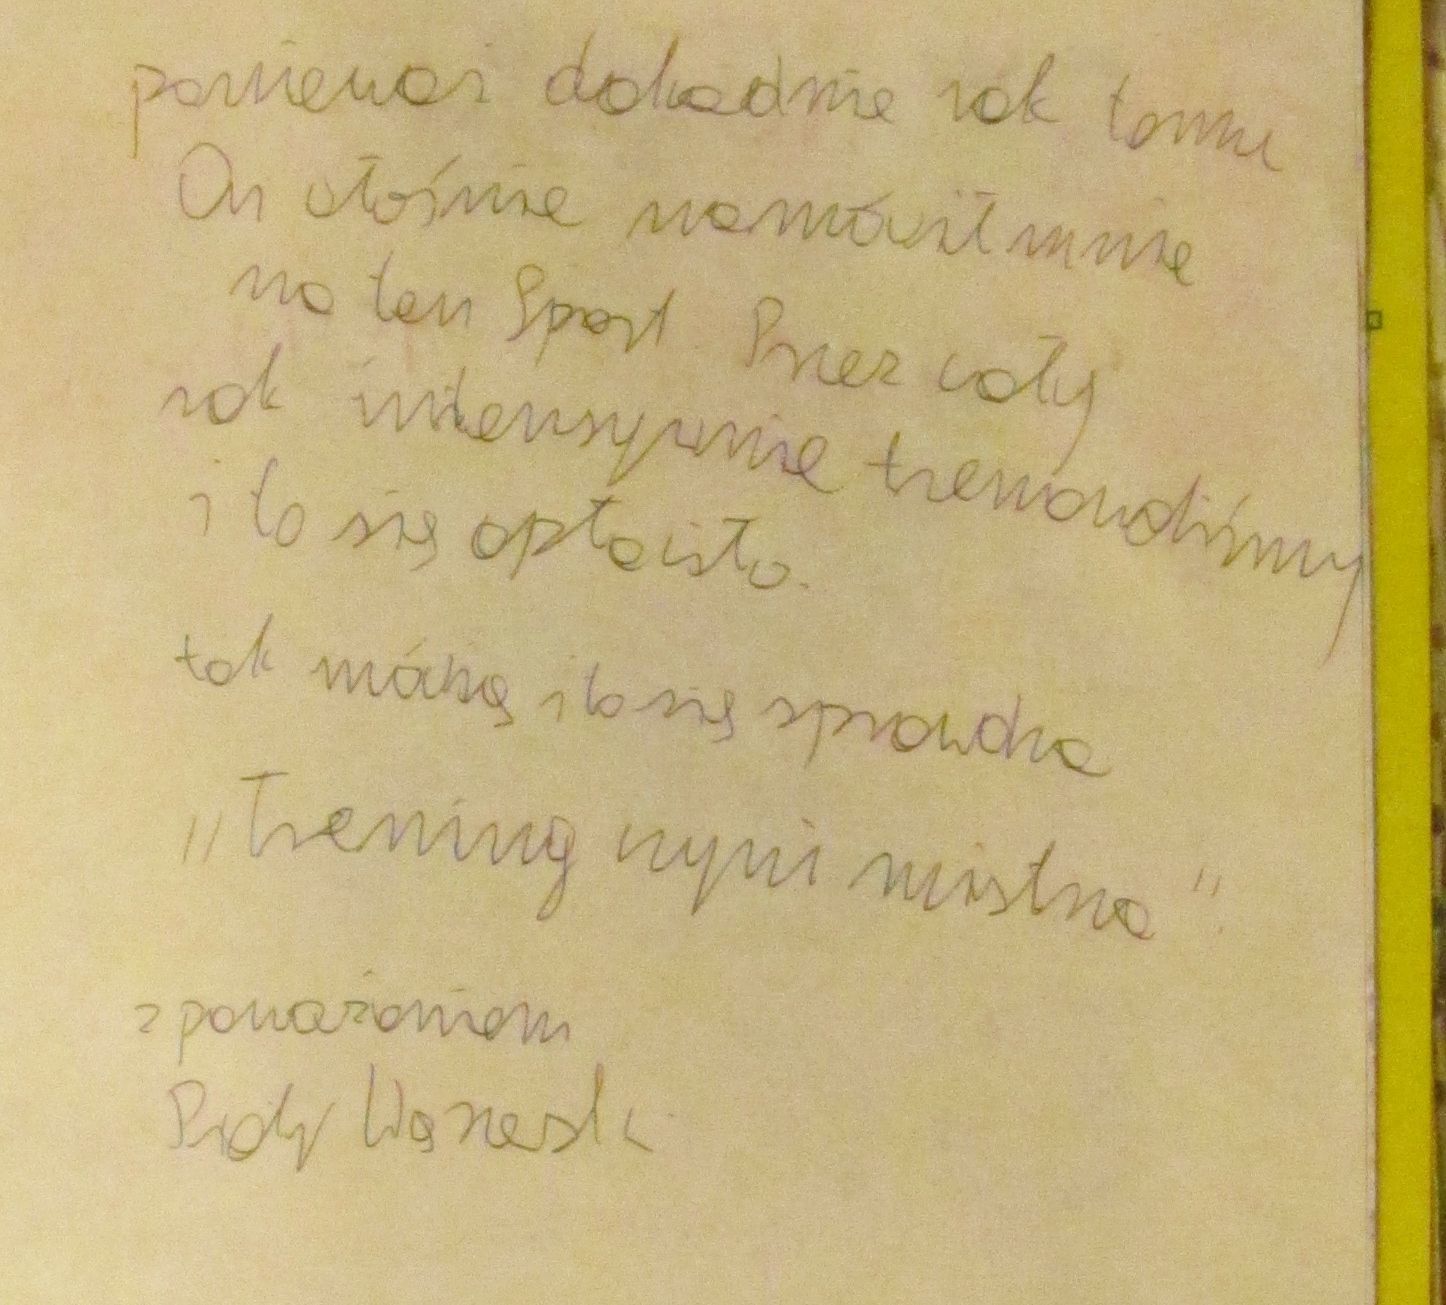 ponieważ dokadnie rok temu
On włośnie namówił mnie
na ten Sport. Przez cały
rok intensywnie trenowaliśmy
i to się opłaciło.
tak mówią i to się sprawdza
"Trening czyni mistrza"
z poważaniem